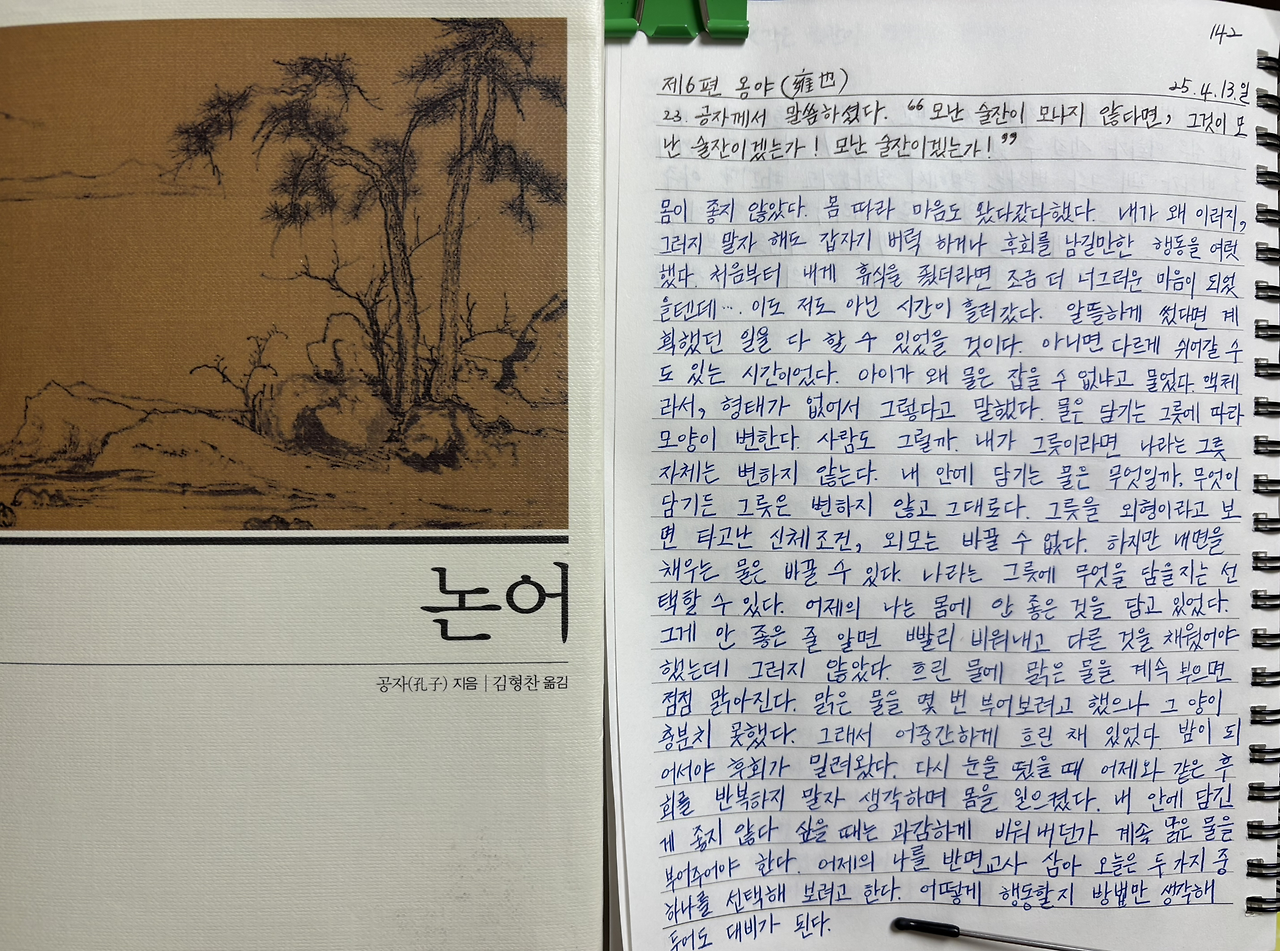 논어
공자(孔子) 지음 | 김형찬 옮김
142
제6편 옹야(雍也) 25.4.13.일
23. 공자께서 말씀하셨다. “모난 술잔이 모나지 않다면, 그것이 모
난 술잔이겠는가! 모난 술잔이겠는가!”
몸이 좋지 않았다. 몸 따라 마음도 왔다갔다했다. 내가 왜 이러지,
그러지 말자 해도 갑자기 버럭 하거나 후회를 남길만한 행동을 여럿
했다. 처음부터 내게 휴식을 줬더라면 조금 더 너그러운 마음이 되었
을텐데…. 이도 저도 아닌 시간이 흘러갔다. 알뜰하게 썼다면 계
획했던 일을 다 할 수 있었을 것이다. 아니면 다르게 쉬어갈 수
도 있는 시간이었다. 아이가 왜 물은 잡을 수 없냐고 물었다. 액체
라서, 형태가 없어서 그렇다고 말했다. 물은 담기는 그릇에 따라
모양이 변한다. 사람도 그럴까. 내가 그릇이라면 나라는 그릇
자체는 변하지 않는다. 내 안에 담기는 물은 무엇일까. 무엇이
담기든 그릇은 변하지 않고 그대로다. 그릇을 외형이라고 보
면 타고난 신체조건, 외모는 바꿀 수 없다. 하지만 내면을
채우는 물은 바꿀 수 있다. 나라는 그릇에 무엇을 담을지는 선
택할 수 있다. 어제의 나는 몸에 안 좋은 것을 담고 있었다.
그게 안 좋은 줄 알면 빨리 비워내고 다른 것을 채웠어야
했는데 그러지 않았다. 흐린 물에 맑은 물을 계속 부으면
점점 맑아진다. 맑은 물을 몇 번 부어보려고 했으나 그 양이
충분치 못했다. 그래서 어중간하게 흐린 채 있었다. 밤이 되
어서야 후회가 밀려왔다. 다시 눈을 떴을 때 어제와 같은 후
회를 반복하지 말자 생각하며 몸을 일으켰다. 내 안에 담긴
게 좋지 않다 싶을 때는 과감하게 비워내던가 계속 맑은 물을
부어주어야 한다. 어제의 나를 반면교사 삼아 오늘은 두가지 중
하나를 선택해 보려고 한다. 어떻게 행동할지 방법만 생각해
두어도 대비가 된다.